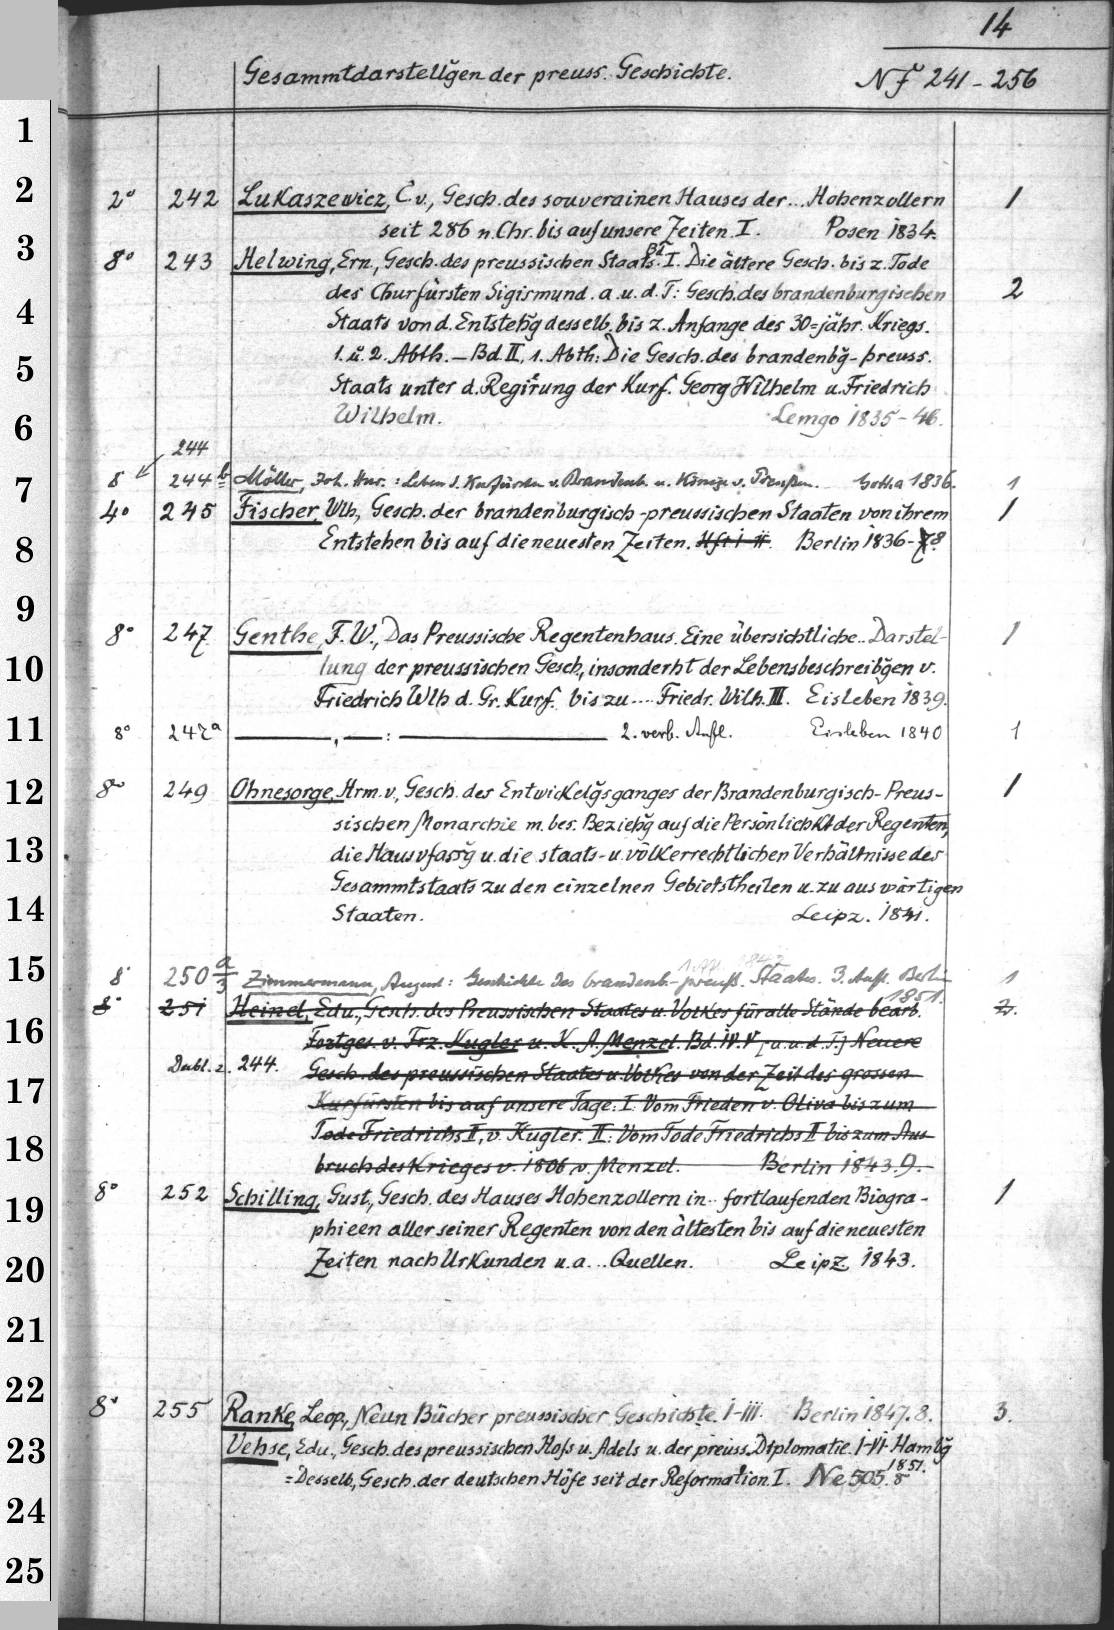 14
Gesammtdarstellg̃en der preuss. Geschichte. Nf 241 - 256
2° 242 Lukaszewicz, C. v., Gesch. des souverainen Hauses der... Hohenzollern 1
seit 286 n. Chr. bis auf unsere Zeiten. I. Posen 1834.
8° 243 Helwing, Ern., Gesch. des preussischen Staats. Bd. I. Die ältere Gesch. bis z. Tode
des Churfürsten Sigismund. a. u. d. T: Gesch. des brandenburgischen 2
Staats von d. Entstehg̃ desselb. bis z. Anfange des 30=jähr. Kriegs.
1. u. 2. Abth. — Bd. II, 1. Abth: Die Gesch. des brandenbg̃- preuss.
Staats unter d. Regirung der Kurf. Georg Wilhelm u. Friedrich
Wilhelm. Lemgo 1835 - 46.
244
8 244 b Möller, Joh. Hnr.: Leben d. Kurfürsten v. Brandenb. u. Könige v. Preußen. Gotha 1836. 1
4° 245 Fischer, Wlh, Gesch. der brandenburgisch-preussischen Staaten von ihrem 1
Entstehen bis auf die neuesten Zeiten. Hft I-II. Berlin 1836-8.
8° 247. Genthe, F. W., Das Preussische Regentenhaus. Eine übersichtliche.. Darstel- 1
lung der preussischen Gesch., insonderht der Lebensbeschreibg̃en v.
Friedrich Wlh d. Gr. Kurf. bis zu .... Friedr. Wilh. III. Eisleben 1839.
8° 247a ———, —: ——— 2. verb. Aufl. Eisleben 1840 1
8° 249 Ohnesorge, Hrm. v., Gesch. des Entwickelg̃sganges der Brandenburgisch-Preus- 1
sischen Monarchie m. bes. Beziehg̃ auf die Persönlichkt der Regenten,
die Hausvfassg̃ u. die staats- u. völkerrechtlichen Verhältnisse des
Gesammtstaats zu den einzelnen Gebietstheilen u. zu auswärtigen
Staaten. Leipz. 1841.
1. Afl. 1842
8° 250 a/3 Zimmermann, August: Geschichte des brandenb.-preuß. Staates. 3. Aufl. Berlin 1
1851.
8° 251 Heinel, Edu., Gesch. des Preussischen Staates u. Volkes für alle Stände bearb. 2.
Fortges. v. Frz. Kugler u. K. A. Menzel. Bd. IV. V [a. u. d. T.] Neuere
Dubl. z. 244. Gesch. des preussischen Staates u. Volkes von der Zeit des grossen
Kurfürsten bis auf unsere Tage: I: Vom Frieden v. Oliva bis zum
Tode Friedrichs II, v. Kugler. II: Vom Tode Friedrichs II bis zum Aus-
bruch des Krieges v. 1806, v. Menzel. Berlin 1843.9.
8° 252 Schilling, Gust., Gesch. des Hauses Hohenzollern in.. fortlaufenden Biogra- 1
phieen aller seiner Regenten von den ältesten bis auf die neuesten
Zeiten nach Urkunden u. a. .. Quellen. Leipz. 1843.
8° 255 Ranke, Leop., Neun Bücher preussischer Geschichte. I-III. Berlin 1847.8. 3.
Vehse, Edu., Gesch. des preussischen Hofs u. Adels u. der preuss. Diplomatie. I-VI. Hambg̃
1851.
= Desselb., Gesch. der deutschen Höfe seit der Reformation. I. Ne 505. 8